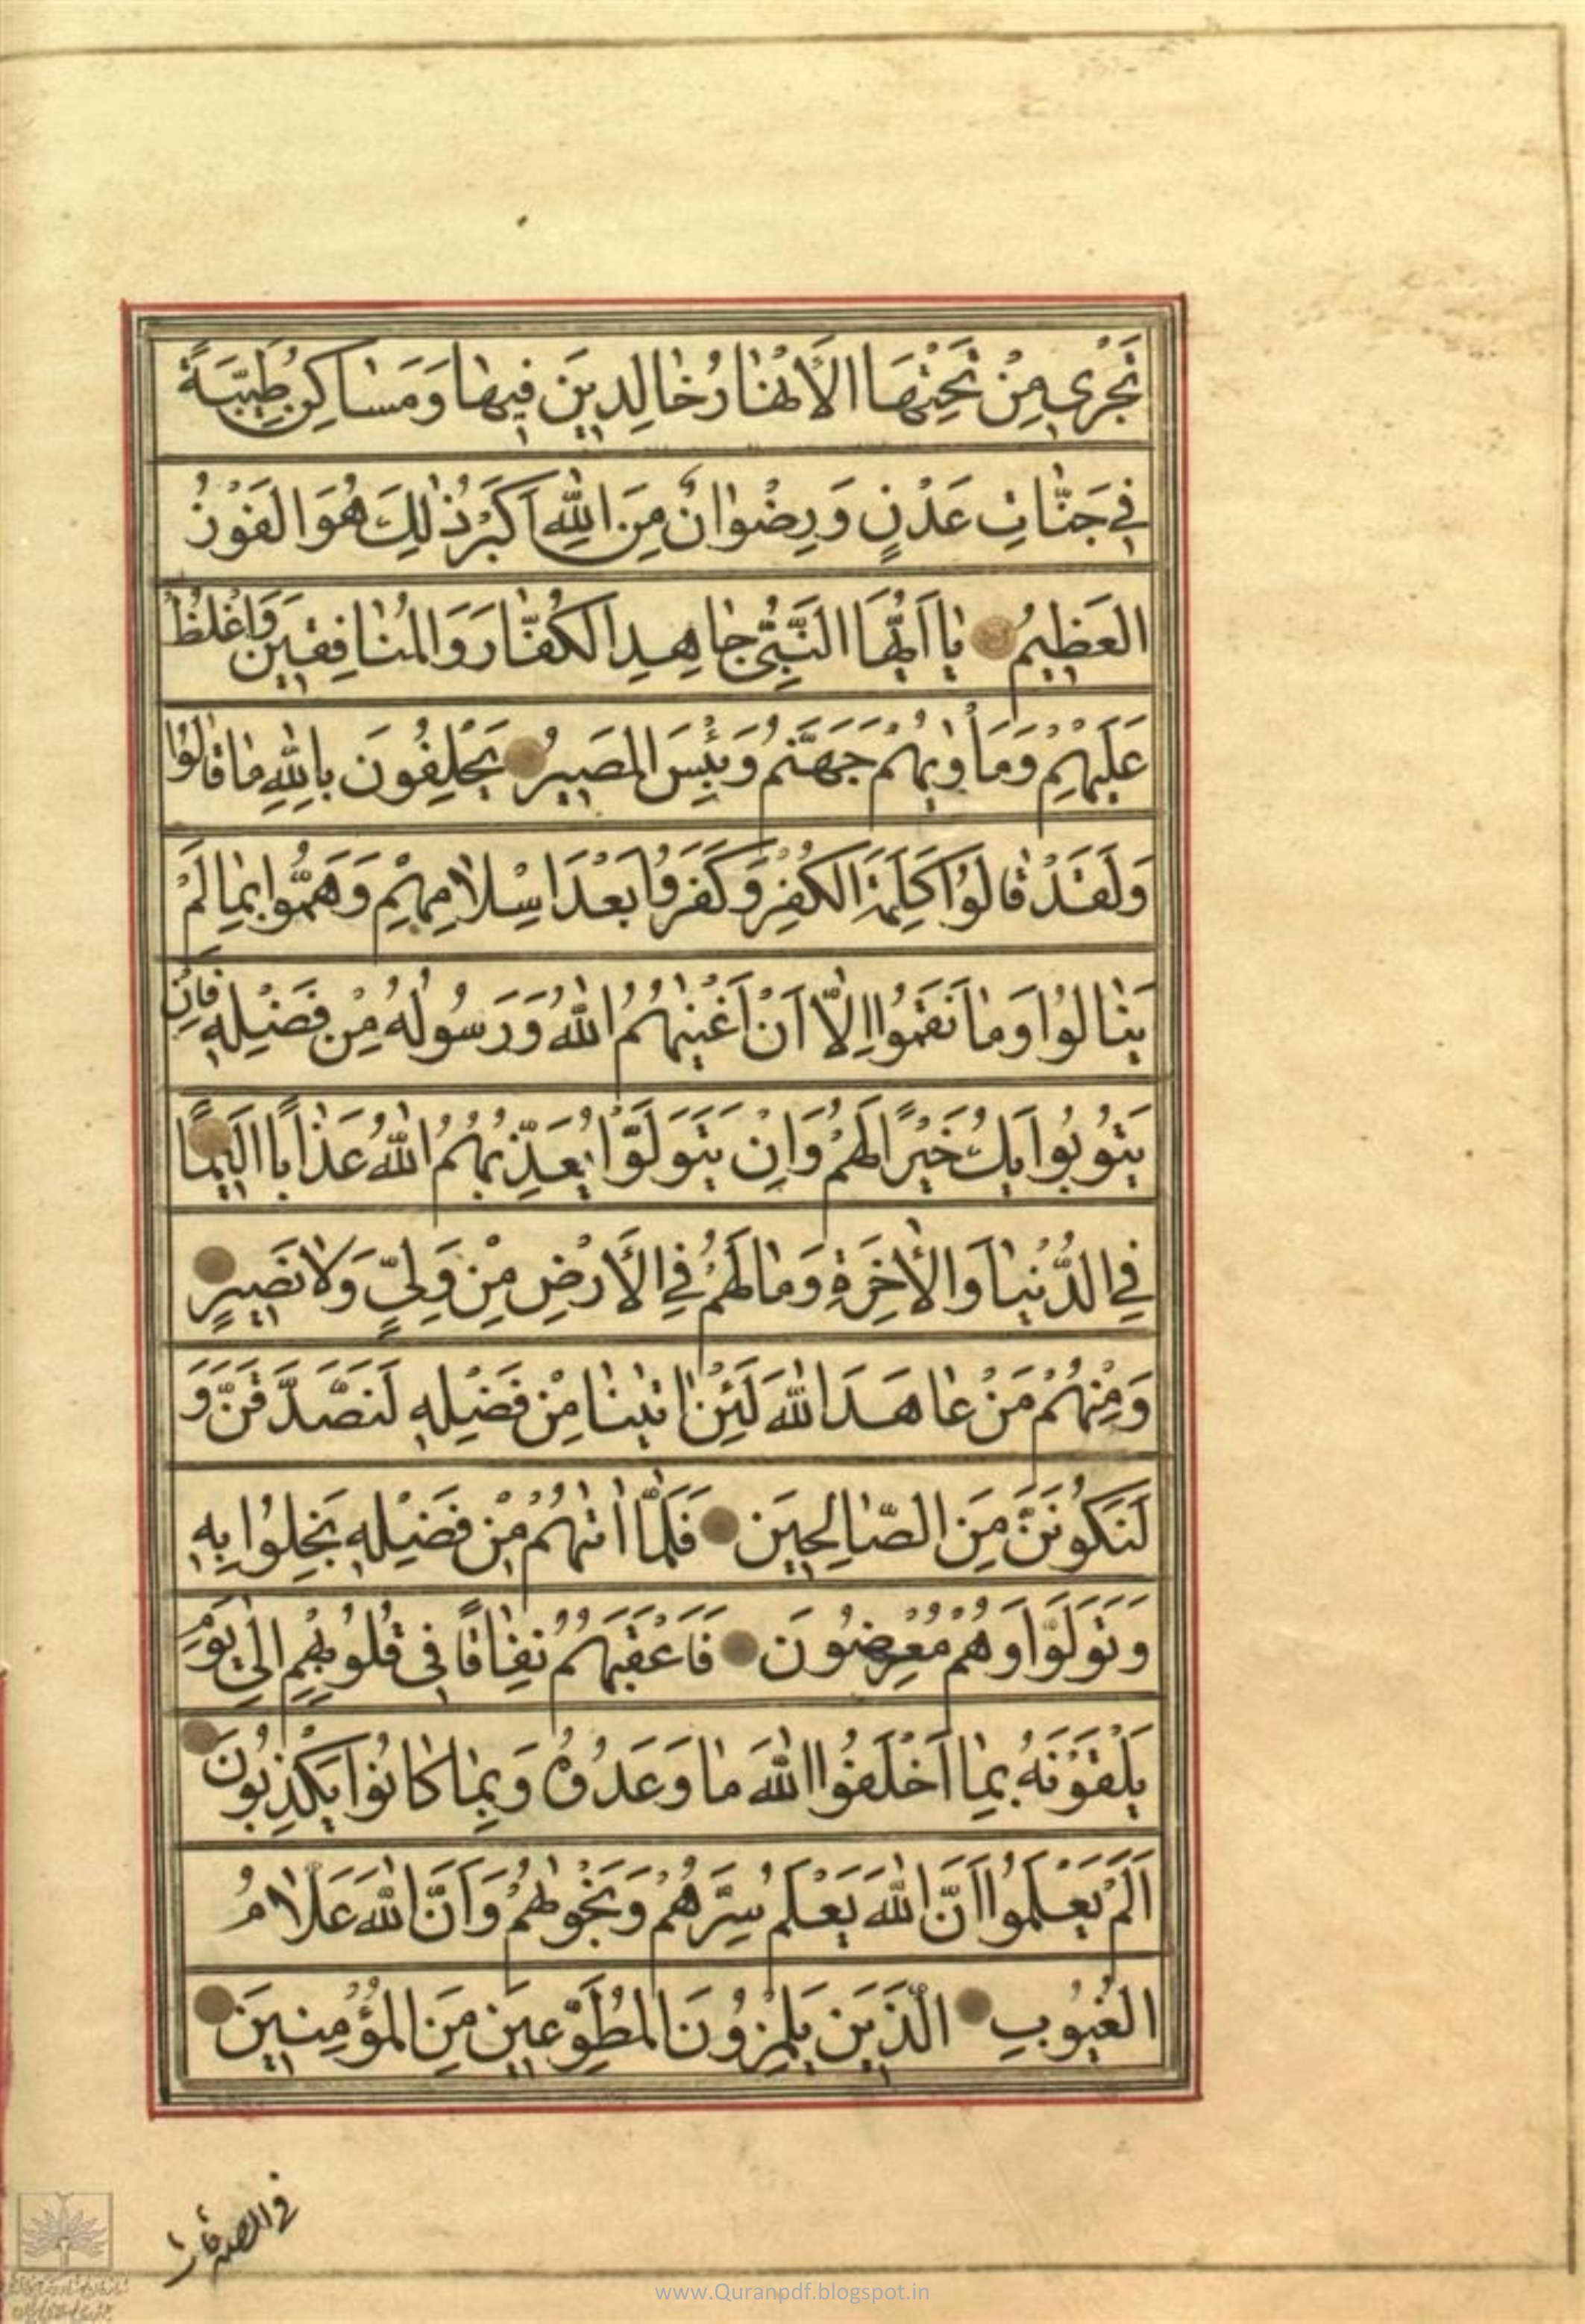 تَجْرِي مِنْ تَحْتِهَا الْأَنْهَارُ خَالِدِينَ فِيهَا وَمَسَاكِنَ طَيِّبَةً
فِي جَنَّاتِ عَدْنٍ وَرِضْوَانٌ مِنَ اللهِ اَكْبَرُ ذٰلِكَ هُوَ الْفَوْزُ
الْعَظِيمُ يَا اَيُّهَا النَّبِيُّ جَاهِدِ الْكُفَّارَ وَالْمُنَافِقِينَ وَاغْلُظْ
عَلَيْهِمْ وَمَأْوٰيهُمْ جَهَنَّمُ وَبِئْسَ الْمَصِيرُ يَحْلِفُونَ بِاللهِ مَا قَالُوا
وَلَقَدْ قَالُوا كَلِمَةَ الْكُفْرِ وَكَفَرُوا بَعْدَ اِسْلَامِهِمْ وَهَمُّوا بِمَا لَمْ
يَنَالُوا وَمَا نَقَمُوا اِلَّا اَنْ اَغْنٰيهُمُ اللهُ وَرَسُولُهُ مِنْ فَضْلِهِ فَاِنْ
يَتُوبُوا يَكُ خَيْرًا لَهُمْ وَاِنْ يَتَوَلَّوْا يُعَذِّبْهُمُ اللهُ عَذَابًا اَلِيمًا
فِي الدُّنْيَا وَالْاٰخِرَةِ وَمَا لَهُمْ فِي الْأَرْضِ مِنْ وَلِيٍّ وَلَا نَصِيرٍ
وَمِنْهُمْ مَنْ عَاهَدَ اللهَ لَئِنْ اٰتٰينَا مِنْ فَضْلِهِ لَنَصَّدَّقَنَّ وَ
لَنَكُونَنَّ مِنَ الصَّالِحِينَ فَلَمَّا اٰتٰيهُمْ مِنْ فَضْلِهِ بَخِلُوا بِهِ
وَتَوَلَّوْا وَهُمْ مُعْرِضُونَ فَاَعْقَبَهُمْ نِفَاقًا فِي قُلُوبِهِمْ اِلٰى يَوْمِ
يَلْقَوْنَهُ بِمَا اَخْلَفُوا اللهَ مَا وَعَدُوهُ وَبِمَا كَانُوا يَكْذِبُونَ
اَلَمْ يَعْلَمُوا اَنَّ اللهَ يَعْلَمُ سِرَّهُمْ وَنَجْوٰيهُمْ وَاَنَّ اللهَ عَلَّامُ
الْغُيُوبِ الَّذِينَ يَلْمِزُونَ الْمُطَّوِّعِينَ مِنَ الْمُؤْمِنِينَ
فى الصدقات
www.Quranpdf.blogspot.in